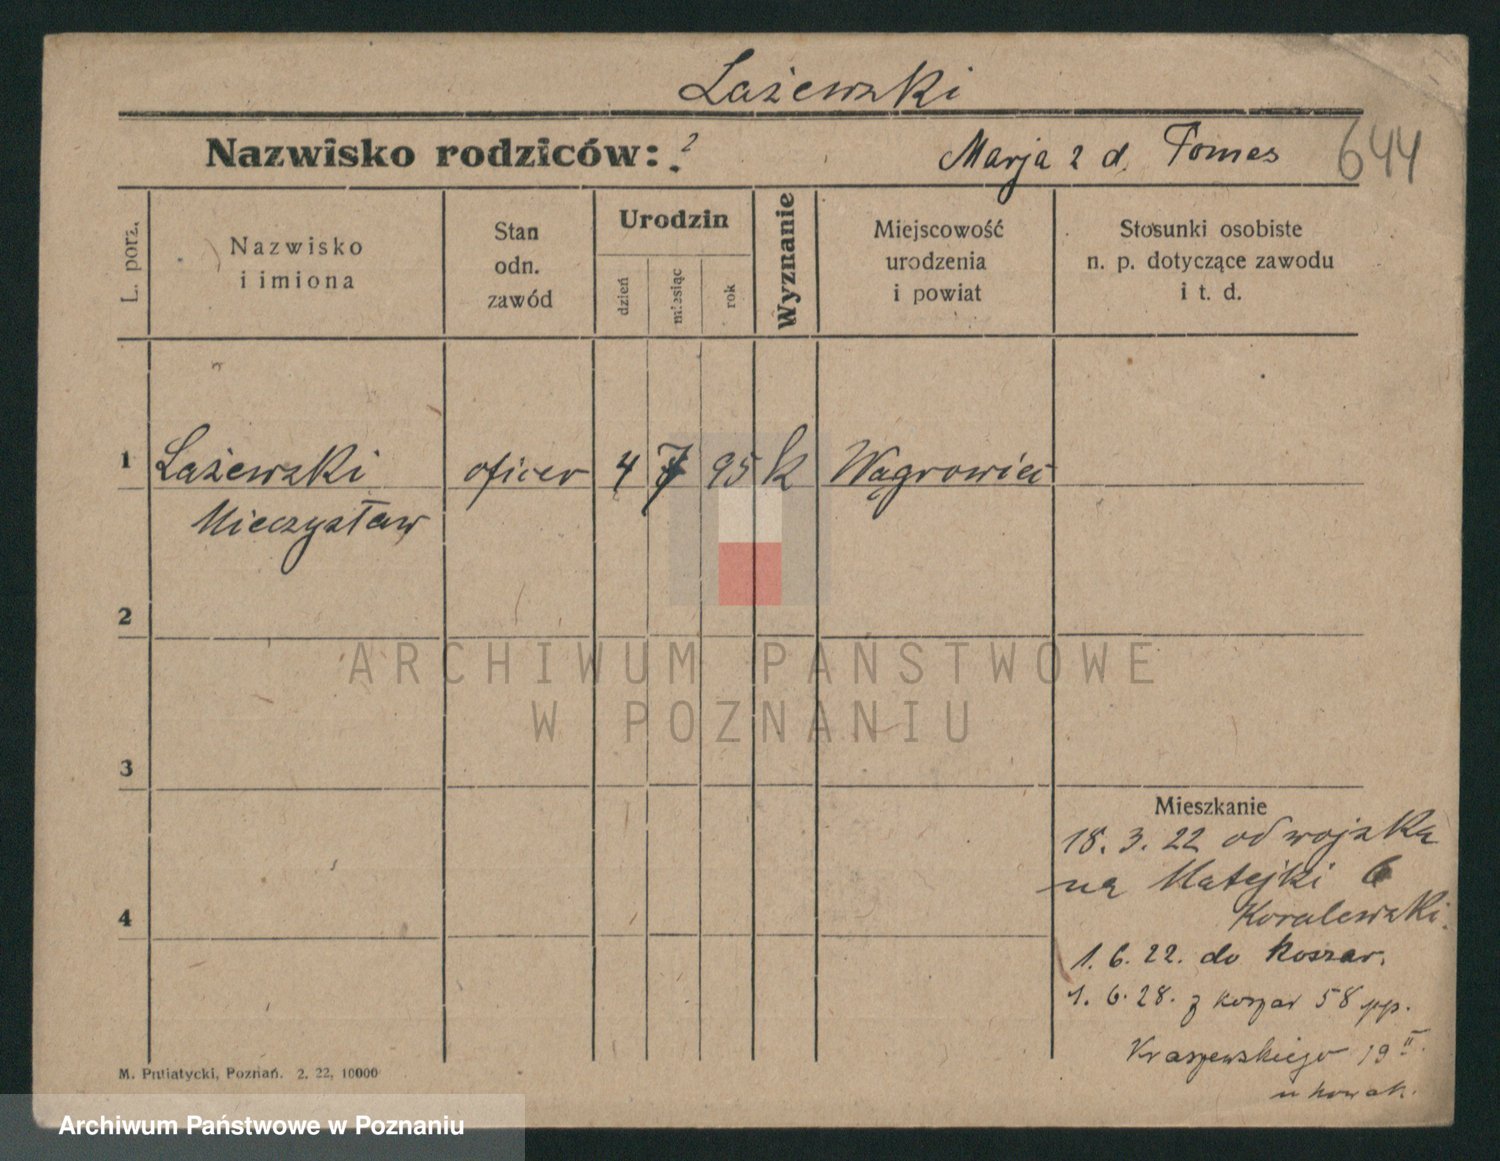 Łażewski
Nazwisko rodziców: ?
Marja z d. Tomes
644
L. porz.
Nazwisko
i imiona
Stan
odn.
zawód
Urodzin
dzień
miesiąc
rok
Wyznanie
Miejscowość
urodzenia
i powiat
Stosunki osobiste
n. p. dotyczące zawodu
i t. d.
1 Łażewski oficer 4 7 95 k Wągrowiec
Mieczysław
2
ARCHIWUM PAŃSTWOWE
W POZNANIU
3
Mieszkanie
18. 3. 22 od wojska
na Matejki 6
Koralewski.
4
1. 6. 22. do koszar.
1. 6. 28. z koszar 58 pp.
Kraszewskiego 19 II.
u Nowak.
M. Putiatycki, Poznań. 2. 22, 10000
Archiwum Państwowe w Poznaniu